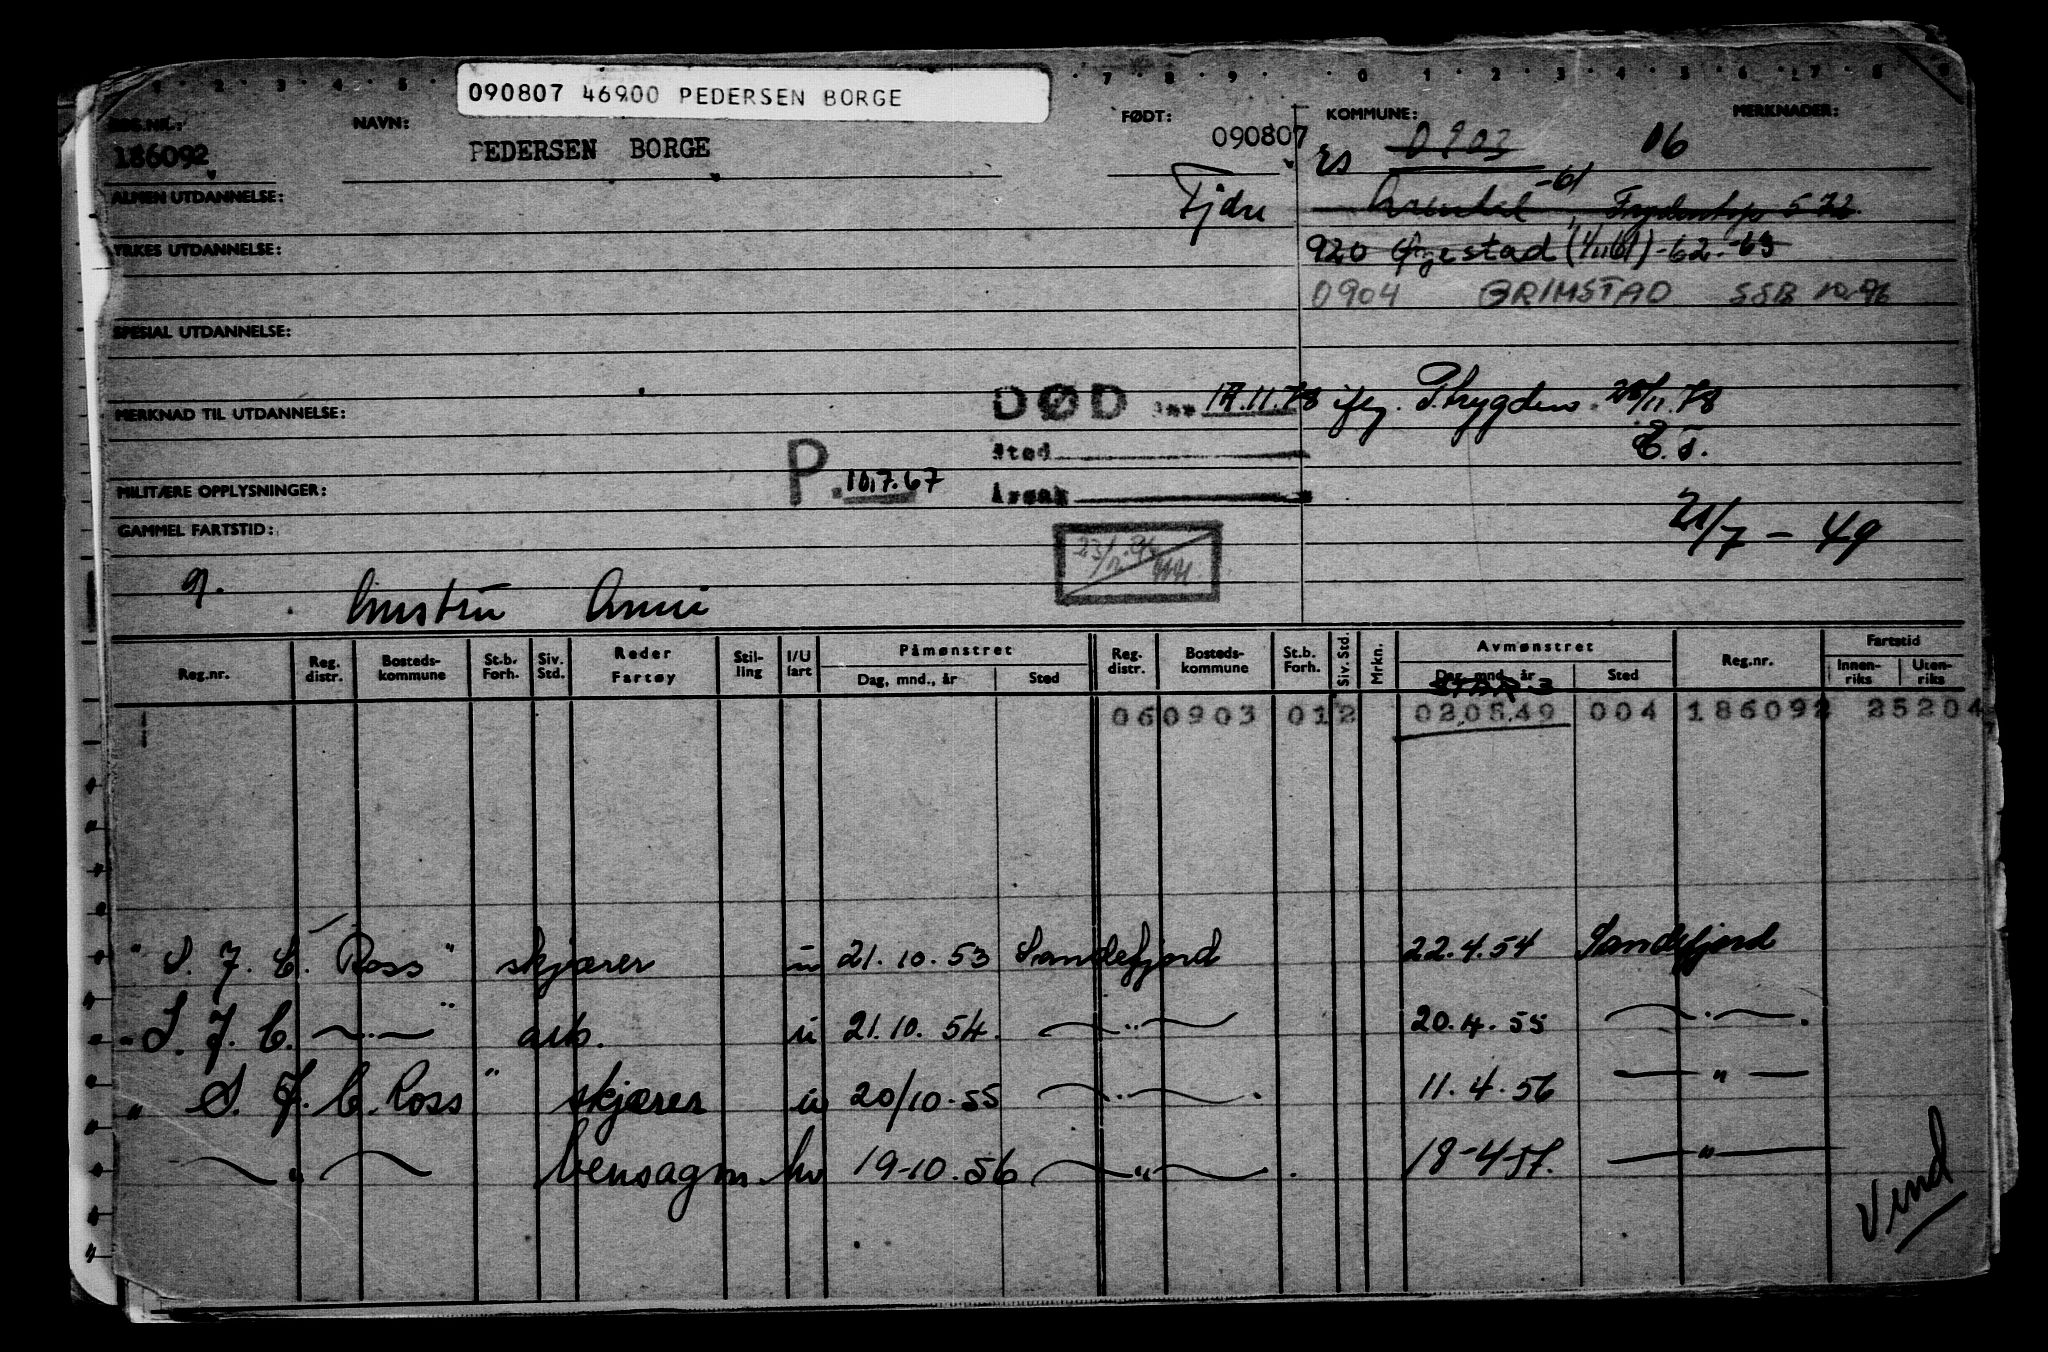 1 2 3 4 5 7 8 9 0 1 2 3 4 5 6 7 8 9
090807 46900 PEDERSEN BORGE
REG.NR.: NAVN: FØDT: KOMMUNE: MERKNADER:
186092 PEDERSEN BORGE 090807 0903 06
ALMEN UTDANNELSE: Fjære -61
YRKES UTDANNELSE: 920 Øyestad (1/1161) -62 -63
0904 GRIMSTAD SSB 10.96
SPESIAL UTDANNELSE:
MERKNAD TIL UTDANNELSE: DØD .11.78 ifg. P.trygden 28/11.78
Sted E.T.
MILITÆRE OPPLYSNINGER: P. 10.7.67 Årsak
GAMMEL FARTSTID: 21/7 - 49
g.
Reg.nr. Reg. distr. Bosteds-kommune St.b. Forh. Siv. Std. Reder Fartøy Stil-ling I/U fart Påmønstret Dag, mnd., år Sted Reg. distr. Bosteds-kommune St.b. Forh. Siv. Std. Mrkn. Avmønstret Dag, mnd., år Sted Reg.nr. Fartstid Innen-riks Uten-riks
060903 012 020549 004 186092 25204
" S. J. C. Ross " skjærer u 21.10.53 Sandefjord 22.4.54 Sandefjord
" S. J. C. —"— " arb. u 21.10.54. —"— 20.4.55 —"—
" S. J. C. Ross " skjærer u 20/10.55 —"— 11.4.56 —"—
—"— bensagm. hv 19-10.56 —"— 18-4-57. —"—
Vend